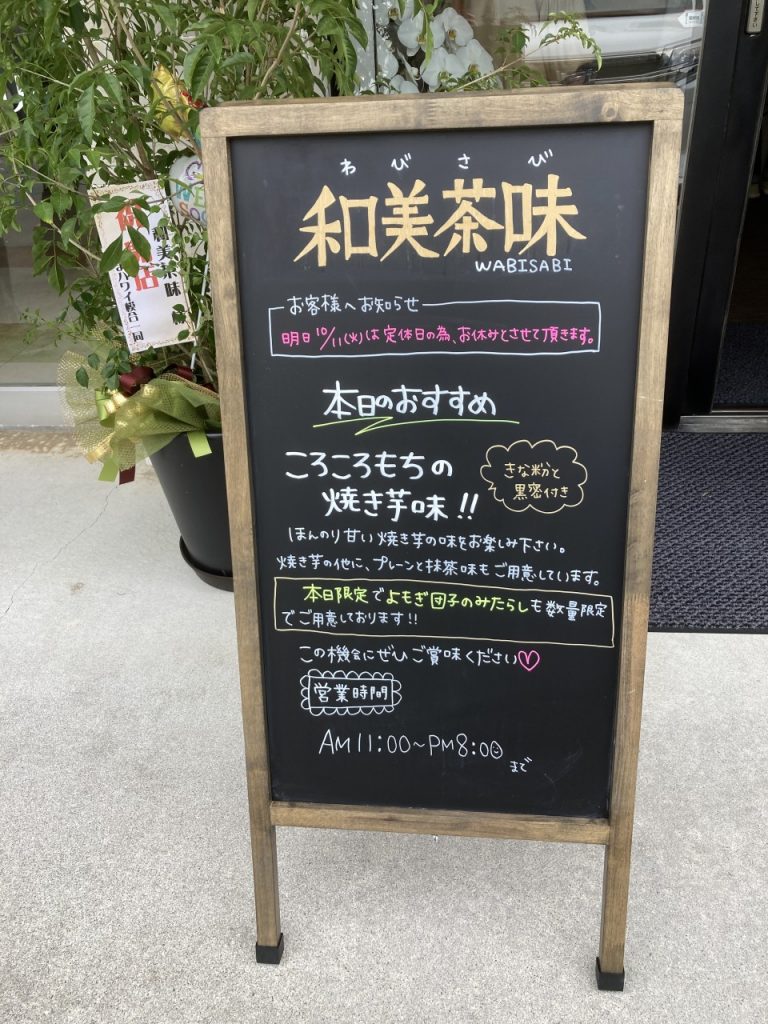 わびさび
和美茶味
WABISABI
お客様へお知らせ
明日10/11(火)は定休日の為、お休みとさせて頂きます。
本日のおすすめ
ころころもちの
焼き芋味!!
きな粉と
黒密付き
ほんのり甘い焼き芋の味をお楽しみ下さい。
焼き芋の他に、プレーンと抹茶味もご用意しています。
本日限定でよもぎ団子のみたらしも数量限定
でご用意しております!!
この機会にぜひご賞味ください♡
営業時間
AM11:00~PM8:00
まで
和美茶味